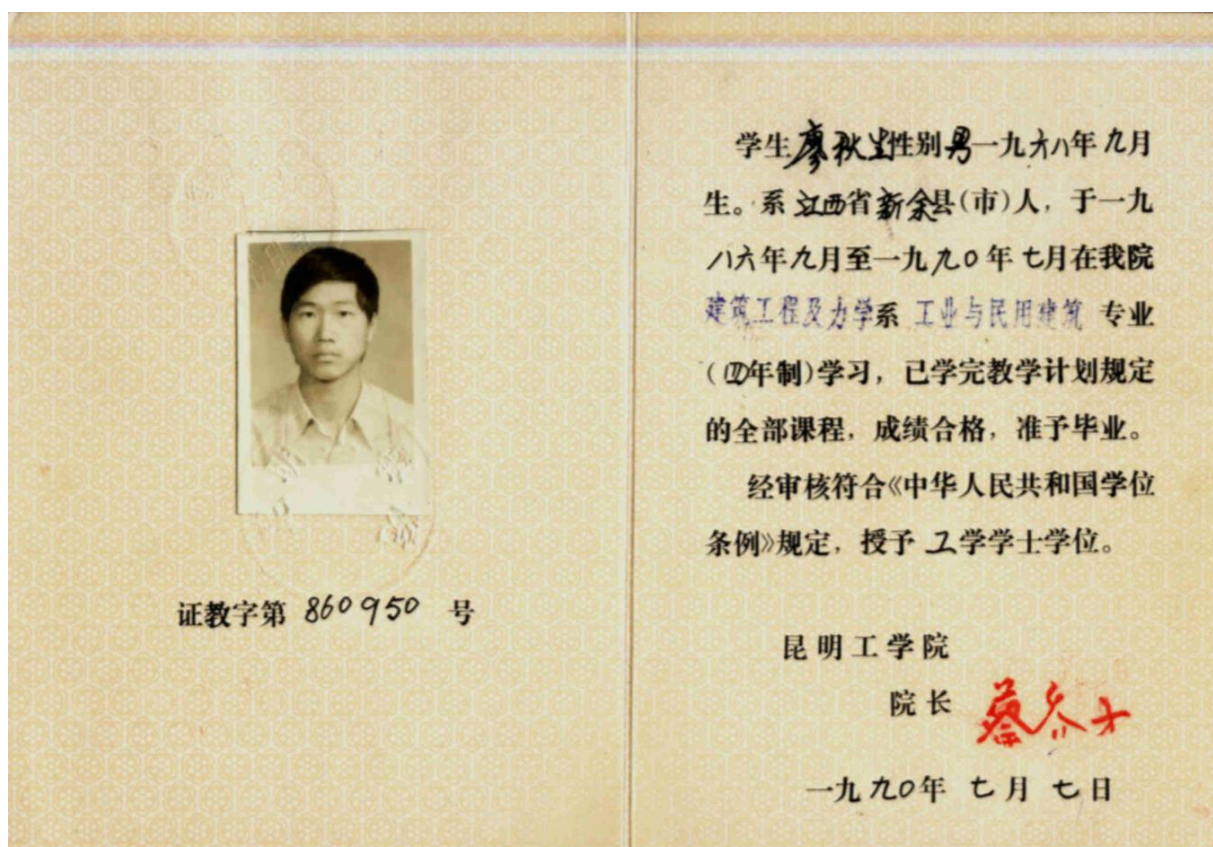 证教字第 860950 号
学生廖秋生性别男一九六八年九月
生。系江西省新余县(市)人，于一九
八六年九月至一九九〇年七月在我院
建筑工程及力学系 工业与民用建筑 专业
(四年制)学习，已学完教学计划规定
的全部课程，成绩合格，准予毕业。
经审核符合《中华人民共和国学位
条例》规定，授予 工学学士学位。
昆明工学院
院长 蔡
一九九〇年 七月 七日